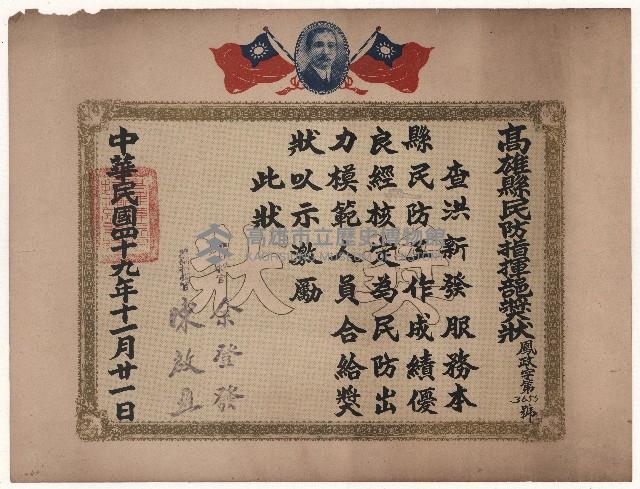 高雄縣民防指揮部獎狀
鳳政字第3655號
查洪新發服務本
縣民防工作成績優
良經核定為民防出
力模範人員合給獎
狀以示激勵
此狀
余登發
陳啟
中華民國四十九年十一月廿一日
獎狀
高雄市立歷史博物館